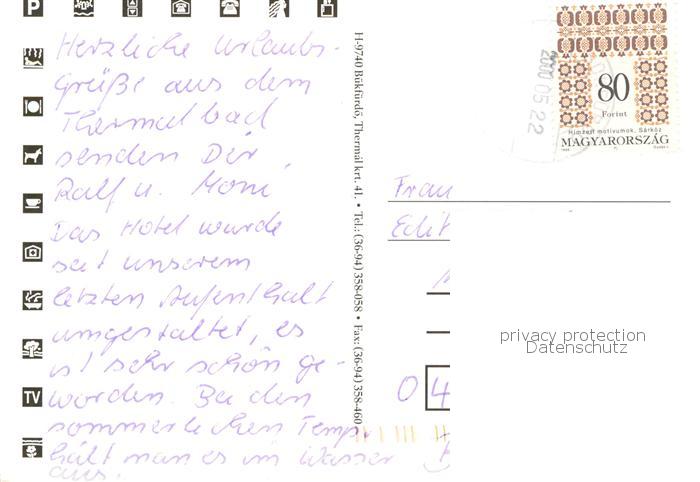 P
Herzliche Urlaubs-
grüße aus dem
Thermalbad
senden Dir,
Ralf u. Moni
Das Hotel wurde
seit unserem
letzten Aufenthalt
umgestaltet, es
ist sehr schön ge-
worden. Bei den
sommerlichen Temp.
hält man es im Wasser
aus.
TV
H-9740 Bükfürdő, Thermál krt. 41. • Tel.: (36-94) 358-058 • Fax: (36-94) 358-460
2000 05 22
80
Forint
Hímzett motívumok, Sárköz
MAGYARORSZÁG
Frau
Edit
04
privacy protection
Datenschutz